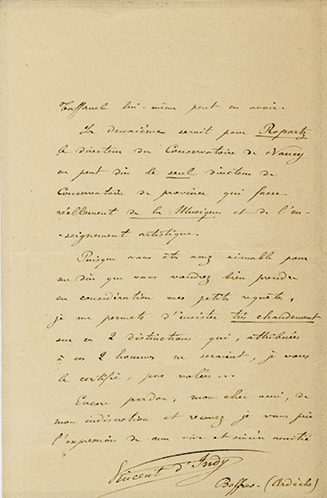 Taffanel lui-même peut en avoir.
La deuxième serait pour Ropartz
le directeur du Conservatoire de Nancy
on peut dire le seul directeur de
Conservatoire de province qui fasse
réellement de la Musique et de l'en-
seignement artistique.
Puisque vous êtes assez aimable pour
me dire que vous voudrez bien prendre
en considération mes petites requêtes,
je me permets d'insister très chaudement
sur ces 2 distinctions qui, attribuées
à ces 2 hommes ne seraient, je vous
le certifie, pas volées...
Encore pardon, mon cher ami, de
mon indiscrétion et recevez je vous prie
l'expression de ma vive et sincère amitié
Vincent d'Indy
Boffres - (Ardèche)